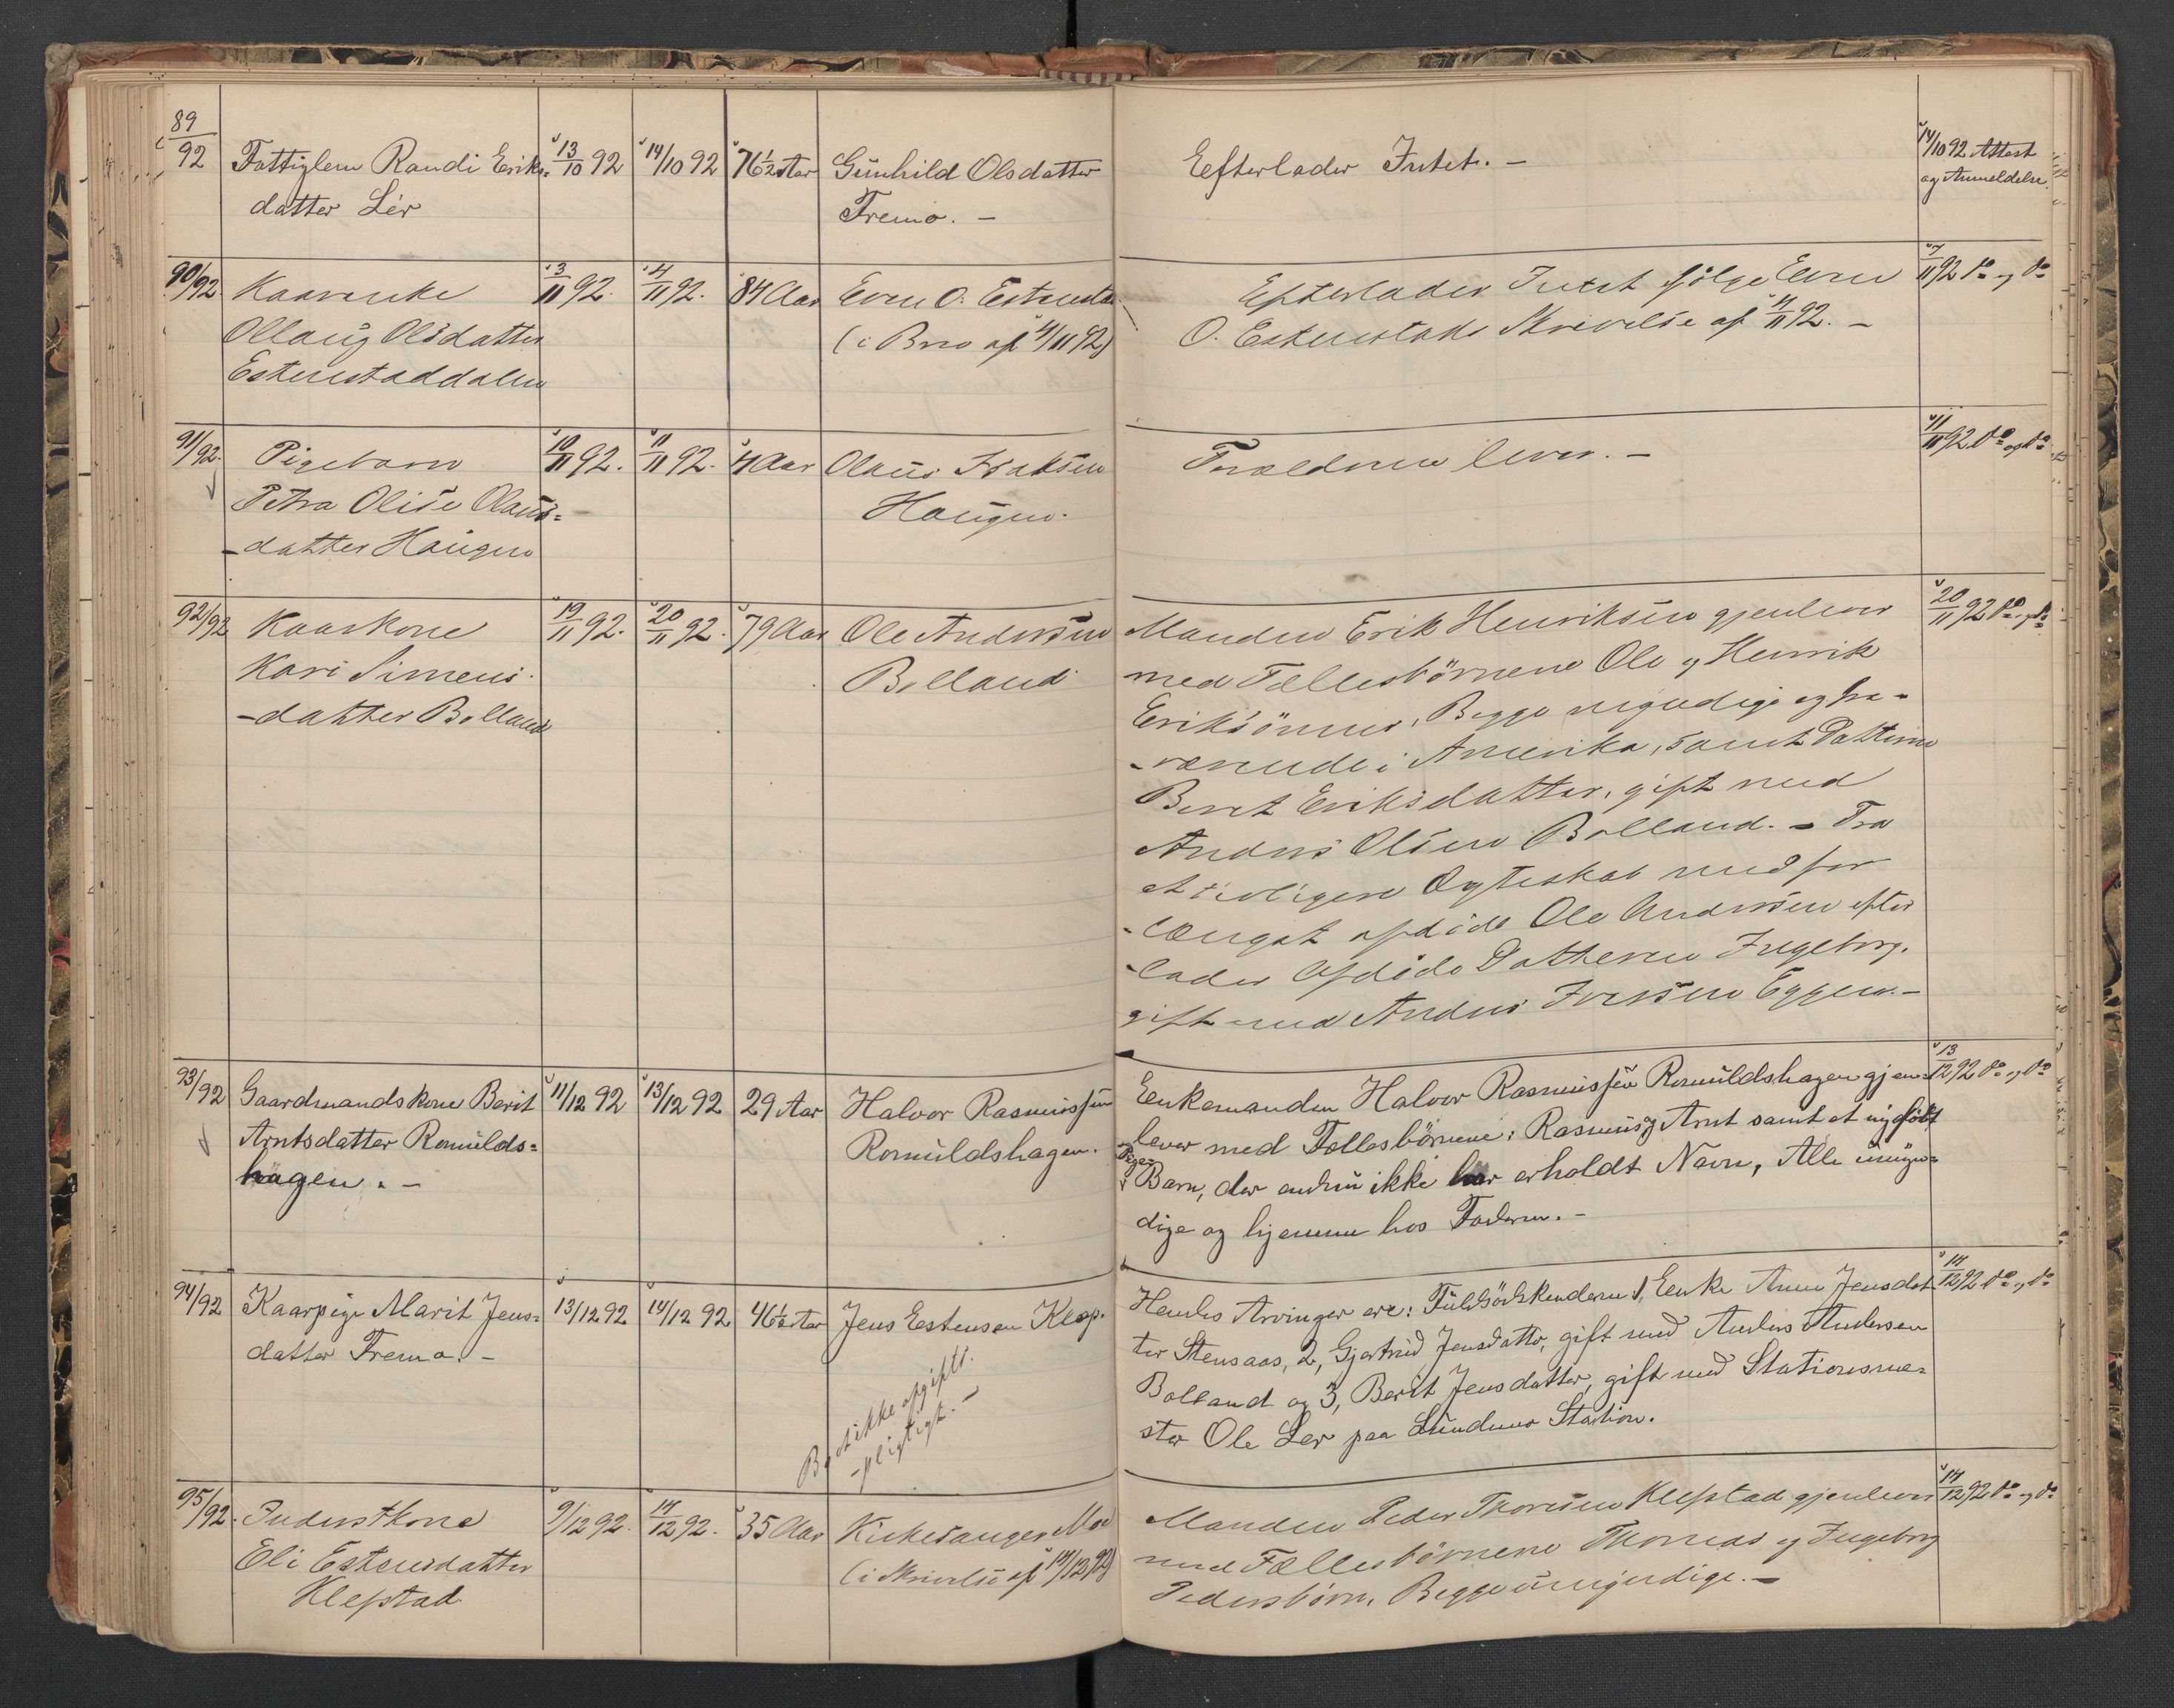 89/92 Fattiglem Randi Eriks= 13/10 92 14/10 92 76½ Aar Gunhild Olsdatter Eefterlader Intet. — 14/10 92 Attest
datter Lér Fremo. — og Anmeldelse.
90/92. Kaarenke 3/11 92. 4/11 92. 84 Aar Even O. Estenstad Efterlader Intet ifölge Even 7/11 92 do og do
Ollaug Olsdatter (i Brev af 4/11 92) O. Estenstads Skrivelse af 4/11 92. —
Estenstaddalen
91/92. Pigebarn 10/11 92. 11/11 92. 4 Aar Olaus Isaksen Forældrene lever. — 11/11 92 do og do
Petra Olise Olaus= Haugen.
-datter Haugen
92/92 Kaarkone 19/11 92. 20/11 92. 79 Aar Ole Andersen Manden Erik Henriksen gjenlever 20/11 92 do og do
Kari Simens- Bolland med Fællesbörnene Ole og Henrik
-datter Bolland Eriksönner, Begge myndige og fra-
-værende i Amerika, samt Datteren
Beret Eriksdatter, gift med
Anders Olsen Bolland. — Fra
et tidligere Ægteskab med for
-længst afdöde Ole Andersen efter
-lader Afdöde Datteren Ingeborg,
gift med Anders Iversen Eggen. —
93/92 Gaardmandskone Berit 11/12 92 13/12 92 29 Aar Halvor Rasmussen Eenkemanden Halvor Rasmussen Romuldshagen gjen= 13/12 92 do og do
Arntsdatter Romulds= Romuldshagen. lever med Fællesbörnene: Rasmus og Arnt samt et nyfödt
hagen. — Pige-Barn, der endnu ikke har erholdt Navn, Alle umyn=
dige og hjemme hos Faderen. —
94/92 Kaarpige Marit Jens= 13/12 92 14/12 92 46½ Aar Jens Estensen Klep. Hendes Arvinger ere: Fuldsödskenderne 1, Eenke Anne Jensdat- 14/12 92 do og do
datter Fremo. — ter Stensaas, 2, Gjertrud Jensdatter, gift med Anders Andersen
Boet ikke afgifts- Bolland og 3, Berit Jensdatter, gift med Stationsme=
-pligtigt. — ster Ole Ler paa Lundemo Station.
95/92. Inderstkone 9/12 92. 14/12 92. 35 Aar Kirkesanger Moe Manden Peder Thoresen Klefstad gjenlever 14/12 92 do og do
Eli Estensdatter (i Skrivelse af 14/12 92) med Fællesbörnene Thomas og Ingeborg
Klefstad Pedersbörn, Begge umyndige. —